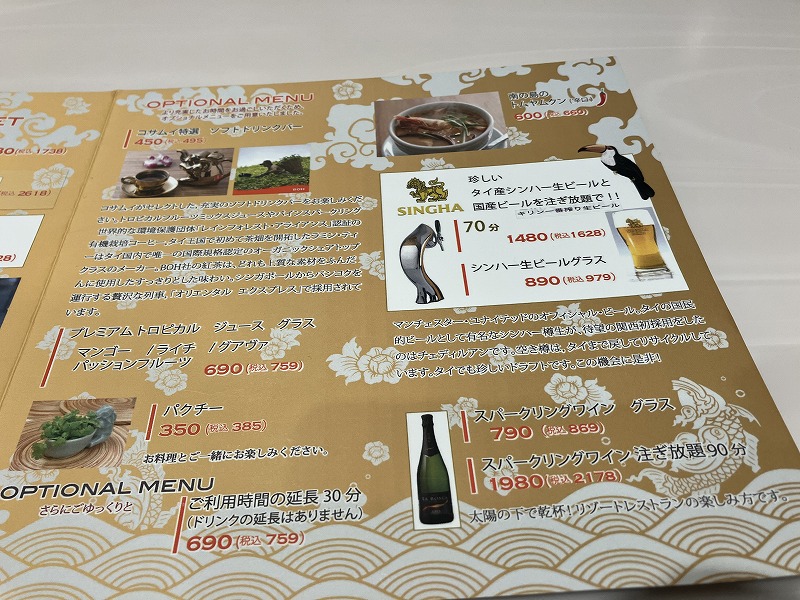 ET
80 (税込 1738)
(税込 2618)
OPTIONAL MENU
より充実したお時間をお過ごしいただくため、
オプショナルメニューをご用意いたしました。
コサムイ特選 ソフトドリンクバー
450 (税込 495)
BOH
コサムイがセレクトした、充実のソフトドリンクバーをお楽しみくだ
さい、トロピカルフルーツミックスジュースやパインスパークリング
世界的な環境保護団体「レインフォレスト・アライアンス」認証の
有機栽培コーヒー、タイ王国で初めて茶畑を開拓したラミン・ティ
ーはタイ国内で唯一の国際規格認定のオーガニックシェアトップ
クラスのメーカー。BOH社の紅茶は、どれも上質な素材をふんだ
んに使用したすっきりとした味わい。シンガポールからバンコクを
運行する贅沢な列車、「オリエンタル エクスプレス」で採用されて
います。
プレミアムトロピカル ジュース グラス
マンゴー /ライチ /グアヴァ
パッションフルーツ 690 (税込 759)
パクチー
350 (税込 385)
お料理とご一緒にお楽しみください。
OPTIONAL MENU
さらにごゆっくりと
ご利用時間の延長 30 分
(ドリンクの延長はありません)
690 (税込 759)
南の島の
トムヤムクン (辛口)
600 (税込 660)
SINGHA
珍しい
タイ産シンハー生ビールと
国産ビールを注ぎ放題で!!
キリン一番搾り生ビール
70分
1480 (税込1628)
シンハー生ビールグラス
890 (税込 979)
マンチェスター・ユナイテッドのオフィシャル・ビール。タイの国民
的ビールとして有名なシンハー樽生が、待望の関西初採用をした
のはチェディルアンです。空き樽は、タイまで戻してリサイクルして
います。タイでも珍しいドラフトです。この機会に是非!
スパークリングワイン グラス
790 (税込 869)
スパークリングワイン 注ぎ放題 90 分
1980 (税込 2178)
太陽の下で乾杯!リゾートレストランの楽しみ方です。